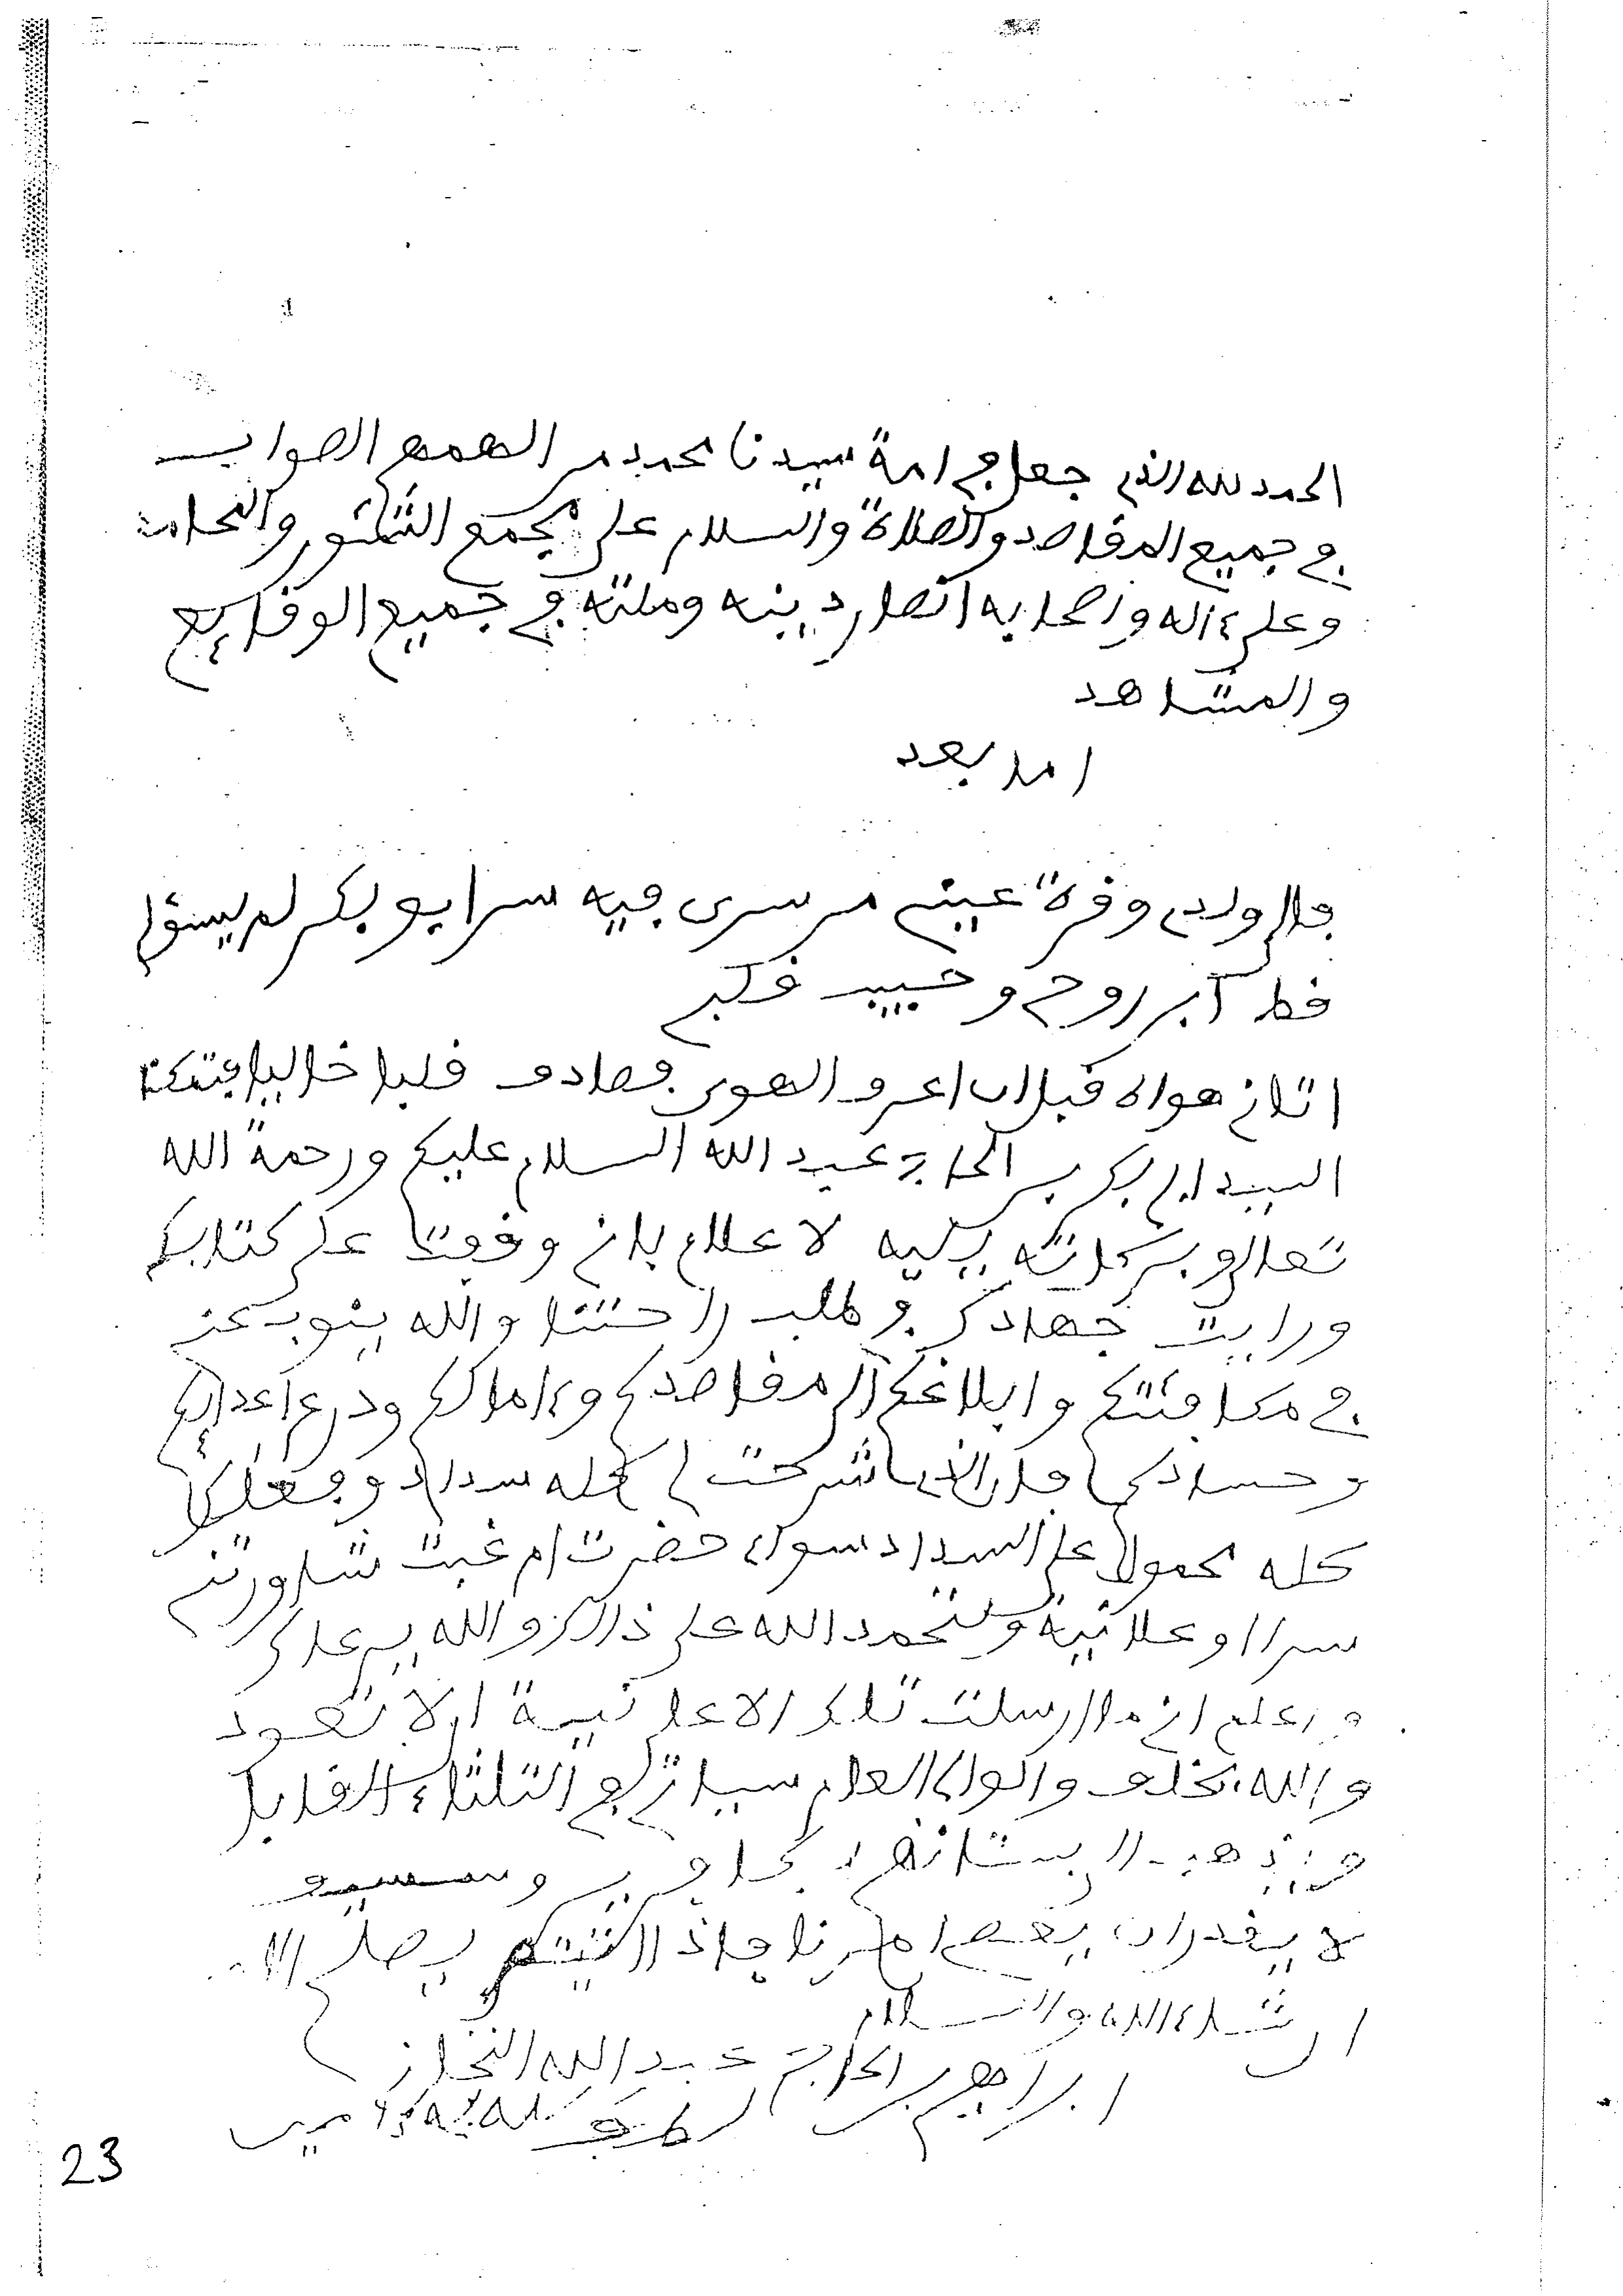 الحمد لله الذي جعل في امة سيدنا محمد من الهمم الصواب
في جميع المقاصد والصلاة والسلام على مجمع
وعلى ءاله واصحابه انصار دينه وملته في جميع الوقايع
والمشاهد
اما بعد
فالى ولدي وقرة عيني من سرى فيه سرايو بكر لم
قط ابن روحي وحبيب قلبي
اتاني هواه قبل ان اعرف الهوى فصادف قلبا خاليا فتمكنا
السيد ابي بكر بن الحاج عبد الله السلام عليكم ورحمة الله
تعالى وبركاته يليه لاعلام باني وقفت على كتابكم
ورايت جهادك في طلب راحتنا والله ينوب عني
في مكافئتكم وابلاغكم الى مقاصدكم وءامالكم ودرء اعدائكم
وحسادكم فان الذي شرحت لي كله سداد وفعلك
كله محمولا على السداد سواء حضرت ام غبت شاورتني
سرا او علانية ونحمد الله على ذالك والله يرعاك
واعلم اني ما ارسلت تلك الاعانية الا تعود
والله يخلف والوالى العام سيا تيكم الثلثاء القابل
ويذهب الى بستانه
لا يقدر ان يعصى امرنا فاذا اتيتم يصل
ان شاء الله والسلام
ابراهيم بن الحاج عبد الله التجاني
23